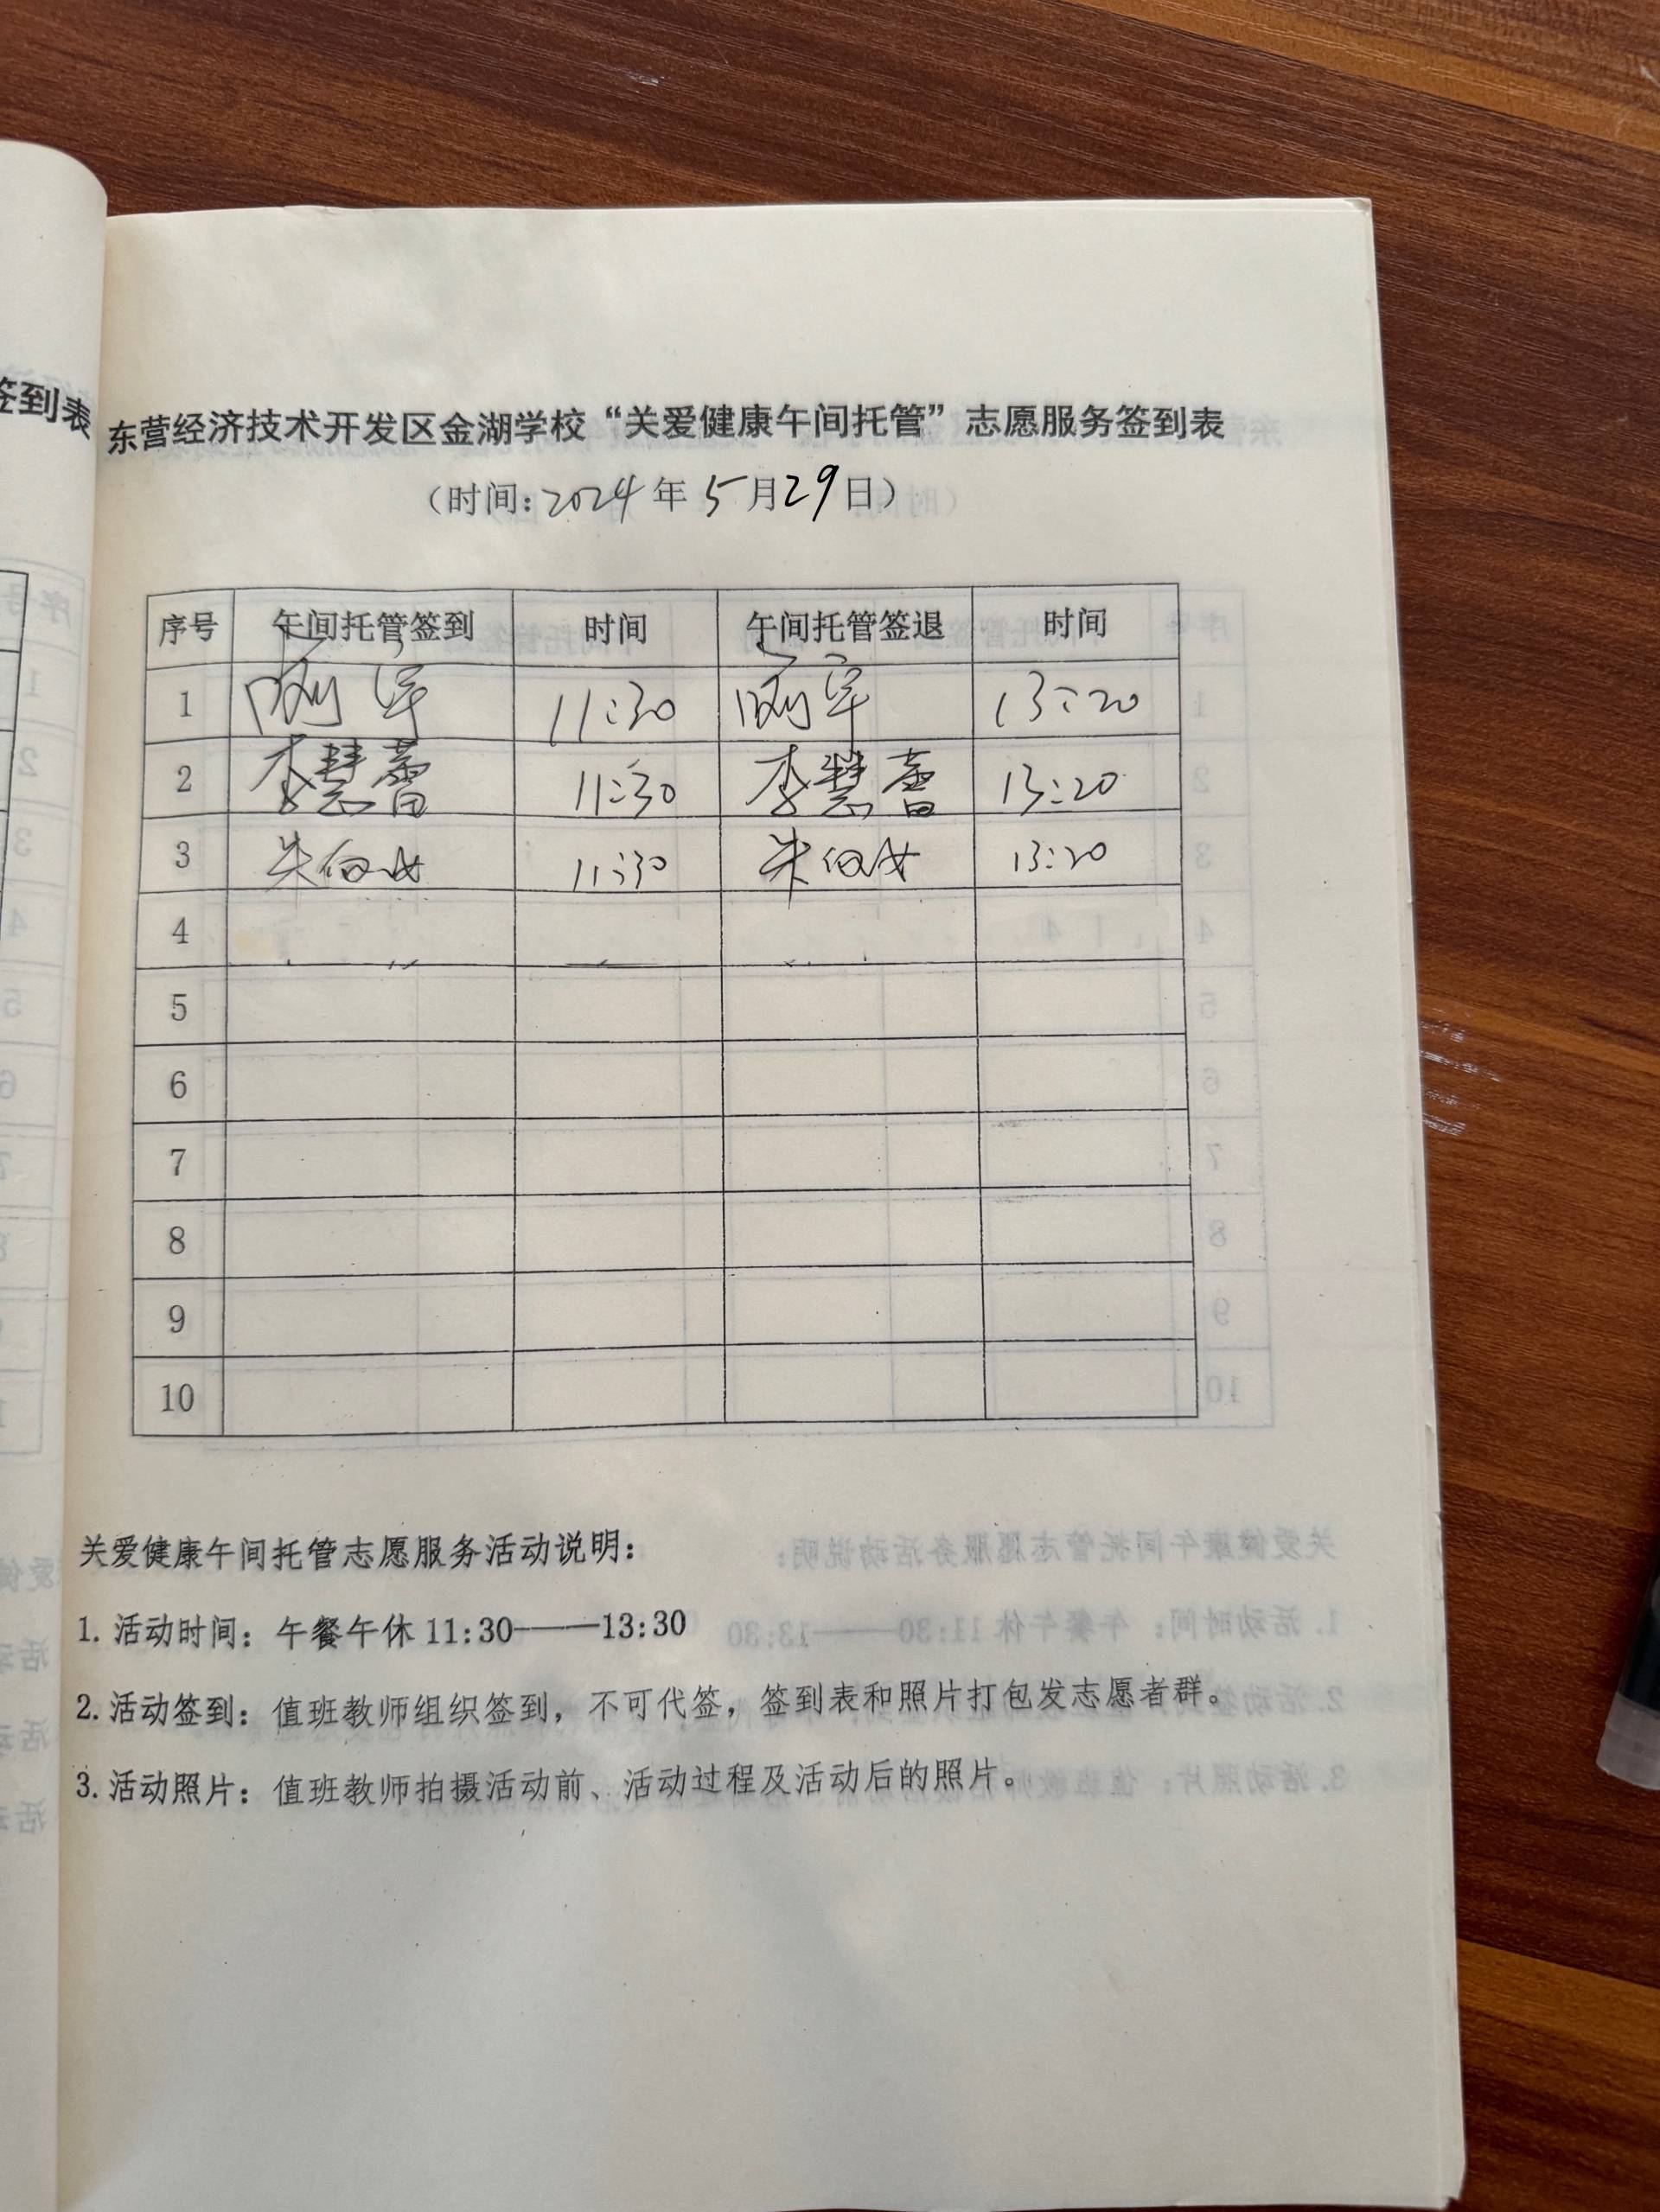 签到表
东营经济技术开发区金湖学校“关爱健康午间托管”志愿服务签到表
（时间：2024年5月29日）
序号 午间托管签到 时间 午间托管签退 时间
1 11:30 13:20
2 李慧蕾 11:30 李慧蕾 13:20
3 朱 11:30 朱 13:20
4
5
6
7
8
9
10
关爱健康午间托管志愿服务活动说明：
1. 活动时间：午餐午休 11:30——13:30
2. 活动签到：值班教师组织签到，不可代签，签到表和照片打包发志愿者群。
3. 活动照片：值班教师拍摄活动前、活动过程及活动后的照片。